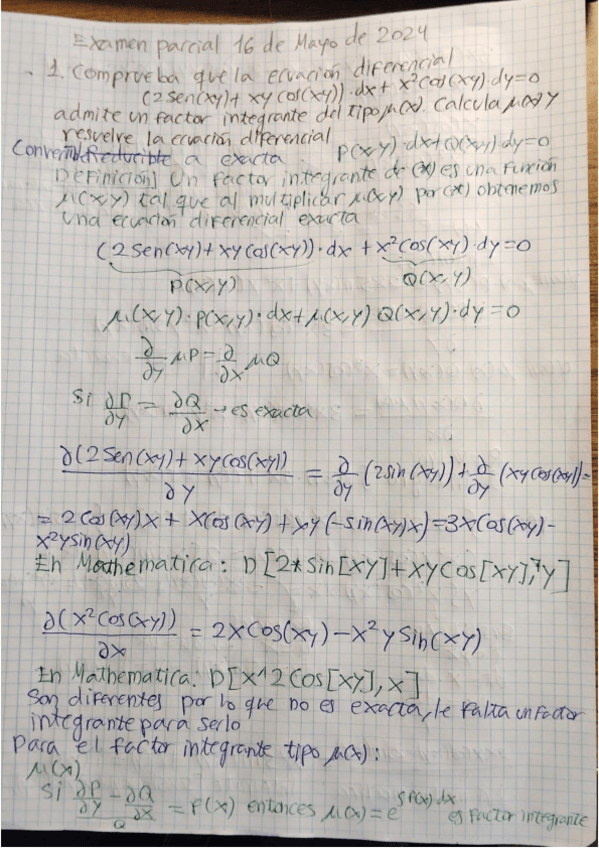 Examen parcial 16 de Mayo de 2024
1. Comprueba que la ecuación diferencial
(2sen(xy)+ xy cos(xy))·dx + x²cos(xy)·dy=0
admite un factor integrante del tipo μ(x). Calcula μ(x) y
resuelve la ecuación diferencial
Reducible a exacta P(x,y)·dx+Q(x,y)dy=0
Definición] Un factor integrante de (*) es una función
μ(x,y) tal que al multiplicar μ(x,y) por (*) obtenemos
una ecuación diferencial exacta
(2sen(xy)+xy cos(xy))·dx + x²cos(xy)·dy=0
P(x,y) Q(x,y)
μ(x,y)·P(x,y)·dx+μ(x,y)Q(x,y)·dy=0
∂/∂y μP = ∂/∂x μQ
Si ∂P/∂y = ∂Q/∂x → es exacta
∂(2sen(xy)+xycos(xy))/∂y = ∂/∂y (2sin(xy))+ ∂/∂y (xycos(xy))=
= 2cos(xy)x + xcos(xy)+xy(-sin(xy)x)=3xcos(xy)-
x²ysin(xy)
En Mathematica: D[2*Sin[xy]+xyCos[xy],y]
∂(x²cos(xy))/∂x = 2xcos(xy)-x²ysin(xy)
En Mathematica: D[x^2Cos[xy],x]
Son diferentes por lo que no es exacta, le falta un factor
integrante para serlo
Para el factor integrante tipo μ(x):
μ(x)
Si (∂P/∂y - ∂Q/∂x)/Q = f(x) entonces μ(x)=e^∫f(x)dx es factor integrante